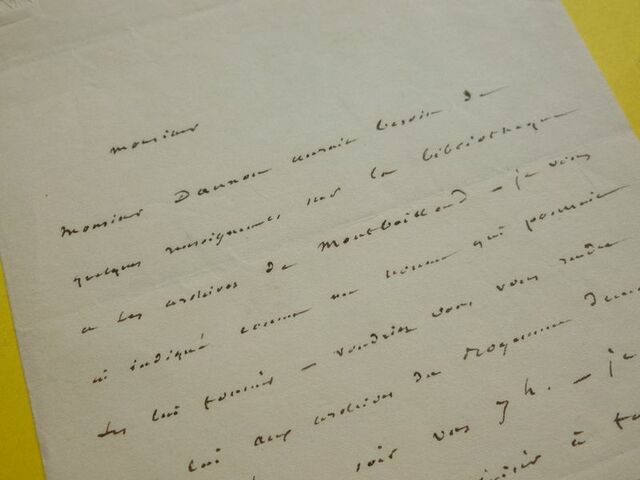 monsieur
Monsieur Daunou aurait besoin de
quelques renseignemens sur la bibliotheque
et les archives de Montbeillard - je vous
ai indiqué comme un homme qui pourrait
les lui fournir - voudriez vous vous rendre
lui aux archives du Royaume
soir vers 7 h. - je
à